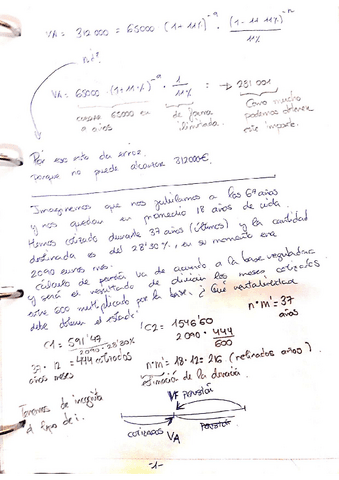 VA = 312 000 = 65000 (1+11%)^-9 · (1-1.11%)^-n / 11%
n?
VA = 65000 · (1+11%)^-9 · 1/11% = → 231 001
9 años
de forma ilimitada.
Como mucho podemos obtener este importe.
Por eso esto da error.
Porque no puede alcanzar 312000€.
Imaginemos que nos jubilamos a los 67 años
y nos quedan en promedio 18 años de vida.
Hemos cotizado durante 37 años (últimos) y la cantidad
destinada es del 28'30%, en su momento era
2090 euros mes.
cálculo de pensión va de acuerdo a la base reguladora
y será el resultado de dividir los meses cotizados
entre 600 multiplicado por la base. ¿Qué rentabilidad
debe obtener el estado?
C1 = 591'47
2090 · 28'30%
C2 = 1546'60
2090 · 444/600
nºm' = 37 años
37 · 12 = 444 cotizados
años meses
nºm' = 18·12 = 216 (retirados años)
estimació de la duración
Tenemos de incognita
el tipo de i.
VF pensión
cotizamos
VA
pensión
-1-